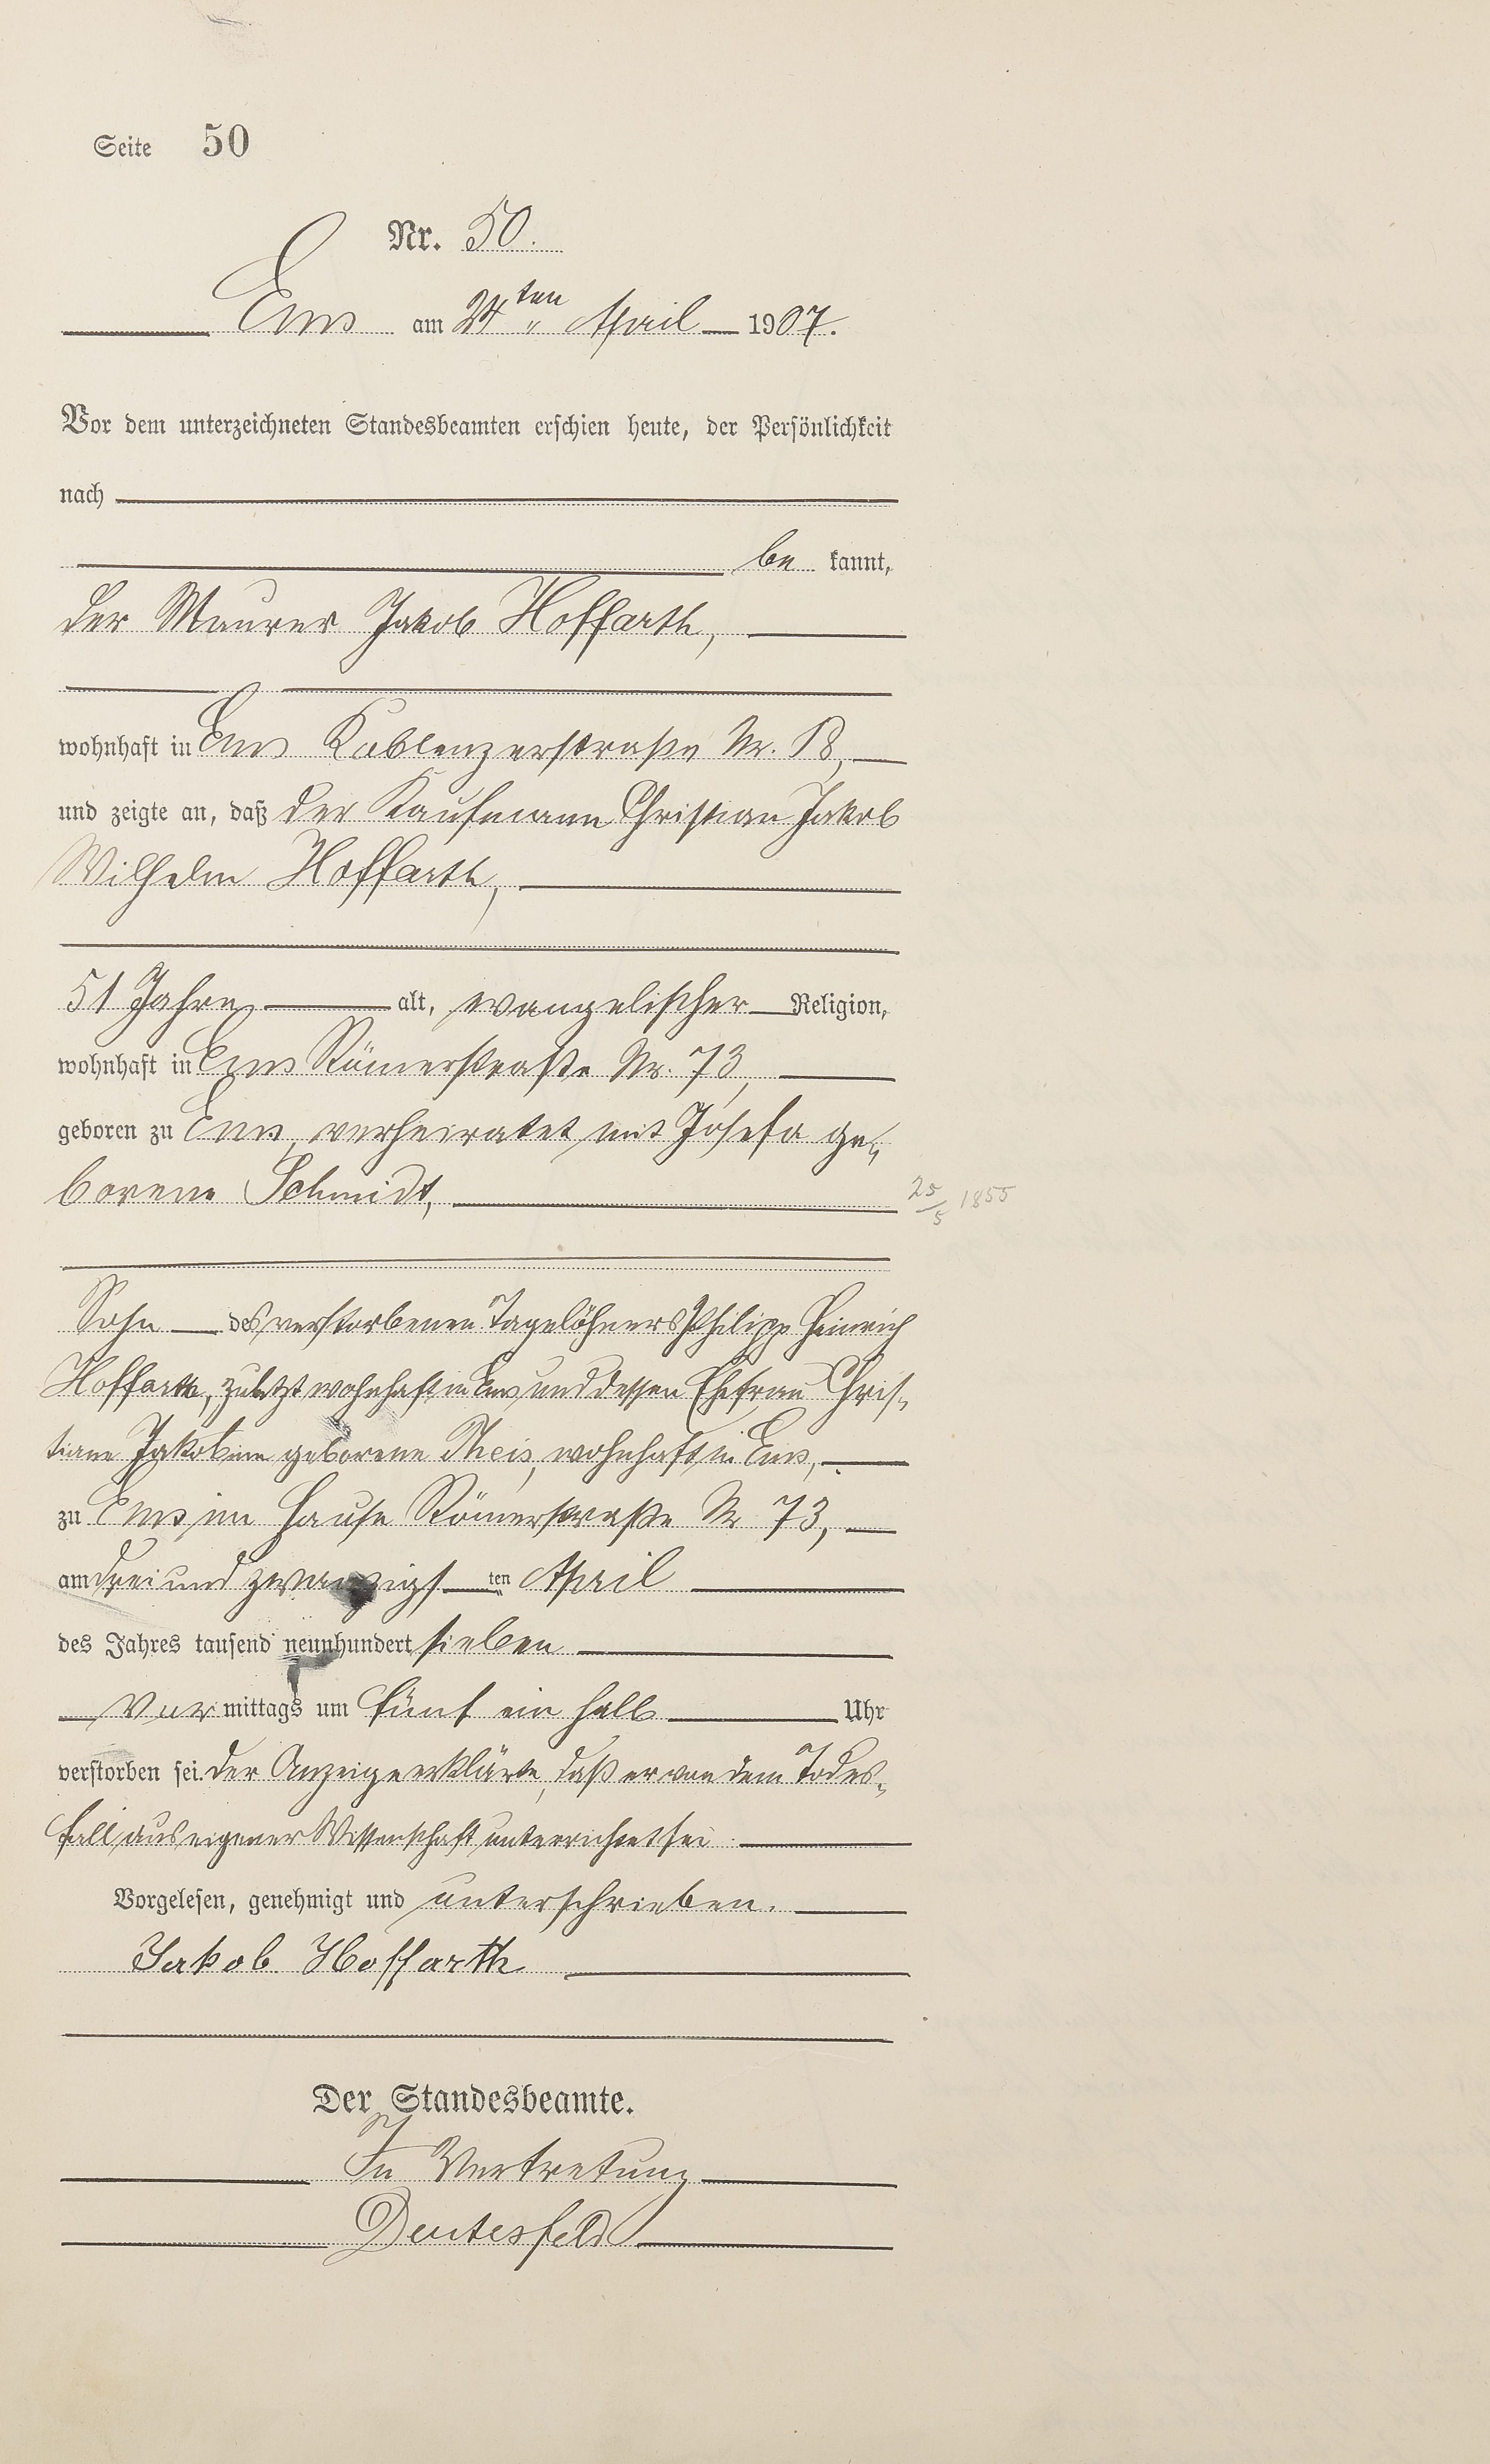 Seite 50
Nr. 50.
Ems am 24ten April 1907.
Vor dem unterzeichneten Standesbeamten erschien heute, der Persönlichkeit
nach
be kannt,
der Maurer Jakob Hoffarth,
wohnhaft in Ems Koblenzerstraße Nr.
und zeigte an, daß der Kaufmann Christian Jakob
Wilhelm Hoffarth,
51 Jahre alt, evangelischer Religion,
wohnhaft in Ems Römerstraße Nr. 73,
geboren zu Ems, verheiratet mit Josefa ge-
borene Schmidt,
25/5 1855
Sohn des verstorbenen Tagelöhners Philipp Heinrich
Hoffarth, zuletzt wohnhaft in Ems und dessen Ehefrau Chris-
tiane Jakobine geborene Theis, wohnhaft in Ems,
zu Ems im Hause Römerstraße Nr 73,
am drei und zwanzigs ten April
des Jahres tausend neunhundert sieben
Vor mittags um fünf ein halb Uhr
verstorben sei. Der Anzeige erklärte, daß er von dem Todes-
fall aus eigener Wissenschaft unterrichtet sei.
Vorgelesen, genehmigt und unterschrieben.
Jakob Hoffarth
Der Standesbeamte.
In Vertretung
Deutesfeld